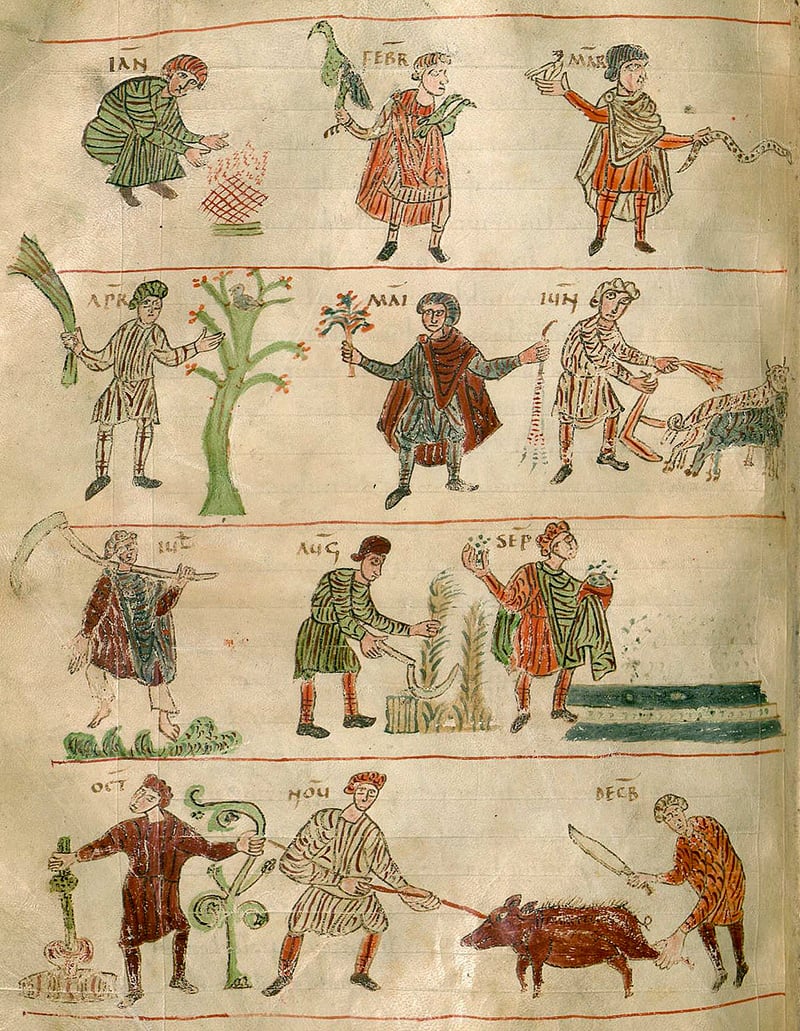 IAN̄ FEBR̄ MAR̄
APR̄ MAI IUN̄
IUL̄ AUḠ SEP̄
OCT̄ NOV̄ DECB̄